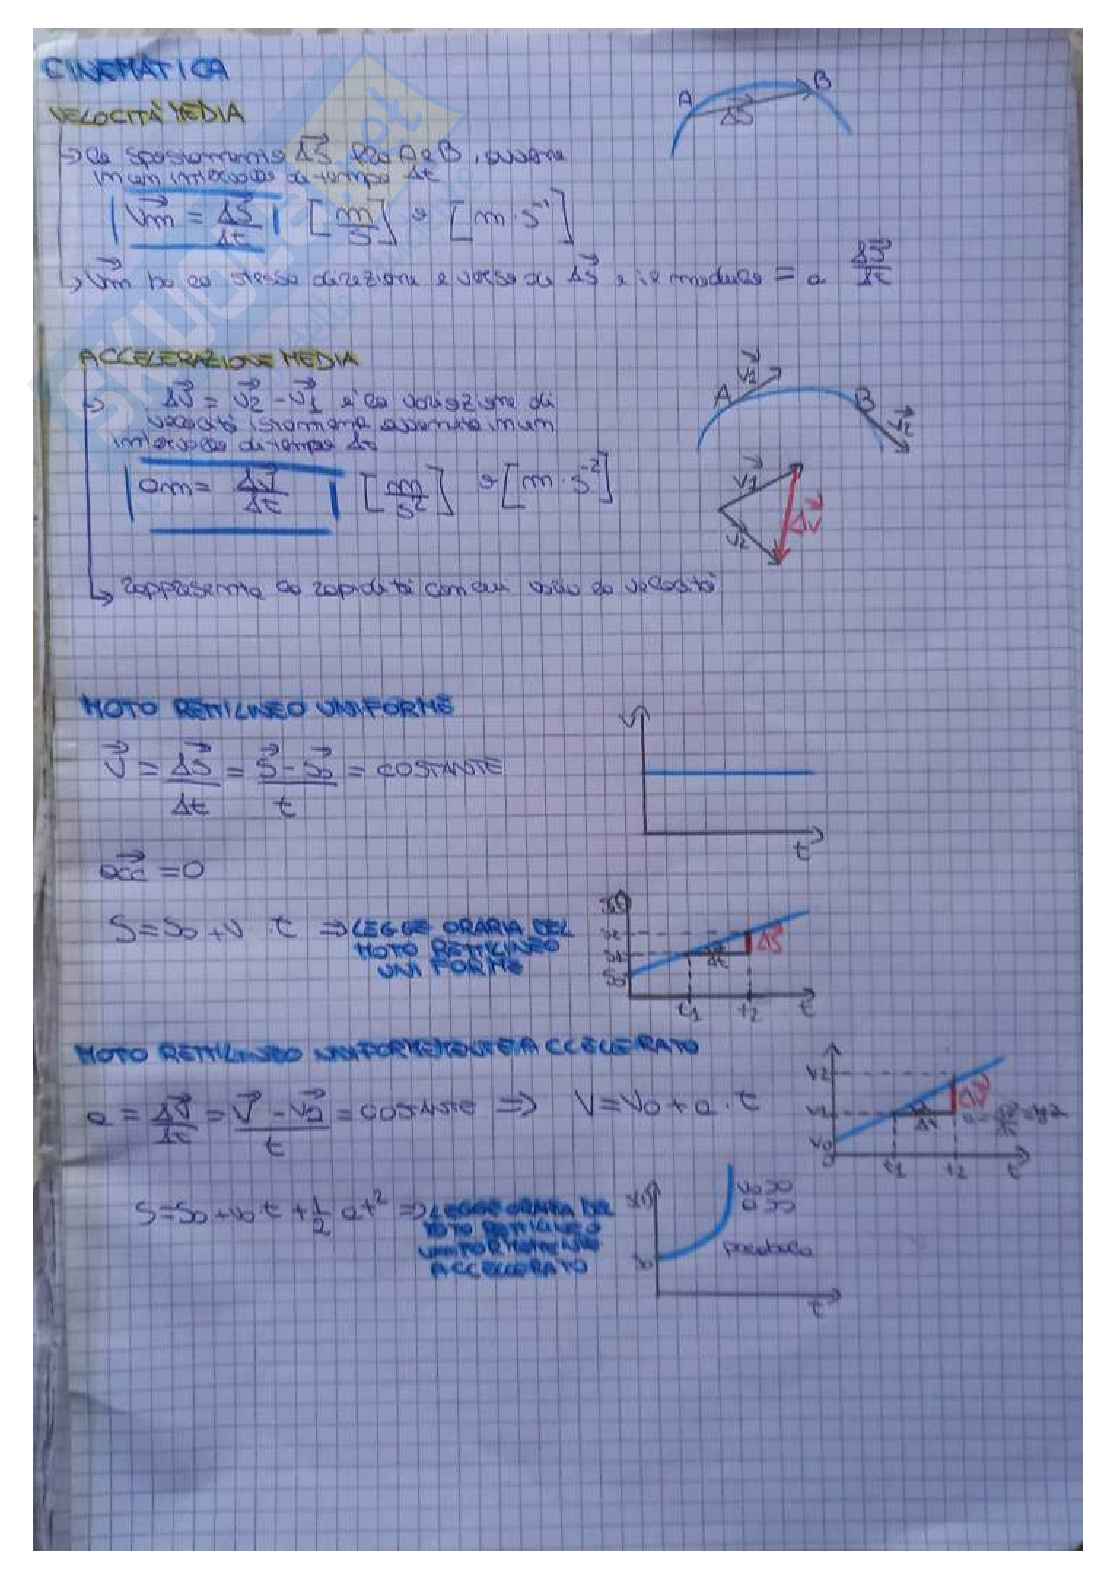 CINEMATICA
A B
VELOCITÀ MEDIA
ΔS
→ Lo spostamento ΔS tra A e B, avviene
in un intervallo di tempo Δt
Vm = ΔS/Δt [m/s] o [m · s⁻¹]
→ Vm ha la stessa direzione e verso di ΔS e il modulo = a ΔS/Δt
ACCELERAZIONE MEDIA
A V2 B V2
→ ΔV = V2 - V1 è la variazione di
velocità istantanea avvenuta in un
intervallo di tempo Δt
am = ΔV/Δt [m/s²] o [m · s⁻²]
V1 ΔV V2
→ rappresenta la rapidità con cui varia la velocità
MOTO RETTILINEO UNIFORME
V
V = ΔS/Δt = S - S0/t = COSTANTE
t
acc = 0
S = S0 + V · t ⇒ LEGGE ORARIA DEL
MOTO RETTILINEO
UNIFORME
S0 Δt ΔS
t1 t2 t
MOTO RETTILINEO UNIFORMEMENTE ACCELERATO
V2
a = ΔV/Δt = V - V0/t = COSTANTE ⇒ V = V0 + a · t
V1 Δt ΔV
V0
0 t1 t2 t
S = S0 + V0 t + 1/2 at² ⇒ LEGGE ORARIA DEL
MOTO RETTILINEO
UNIFORMEMENTE
ACCELLERATO
V0 >0
a >0
parabola
S0
t